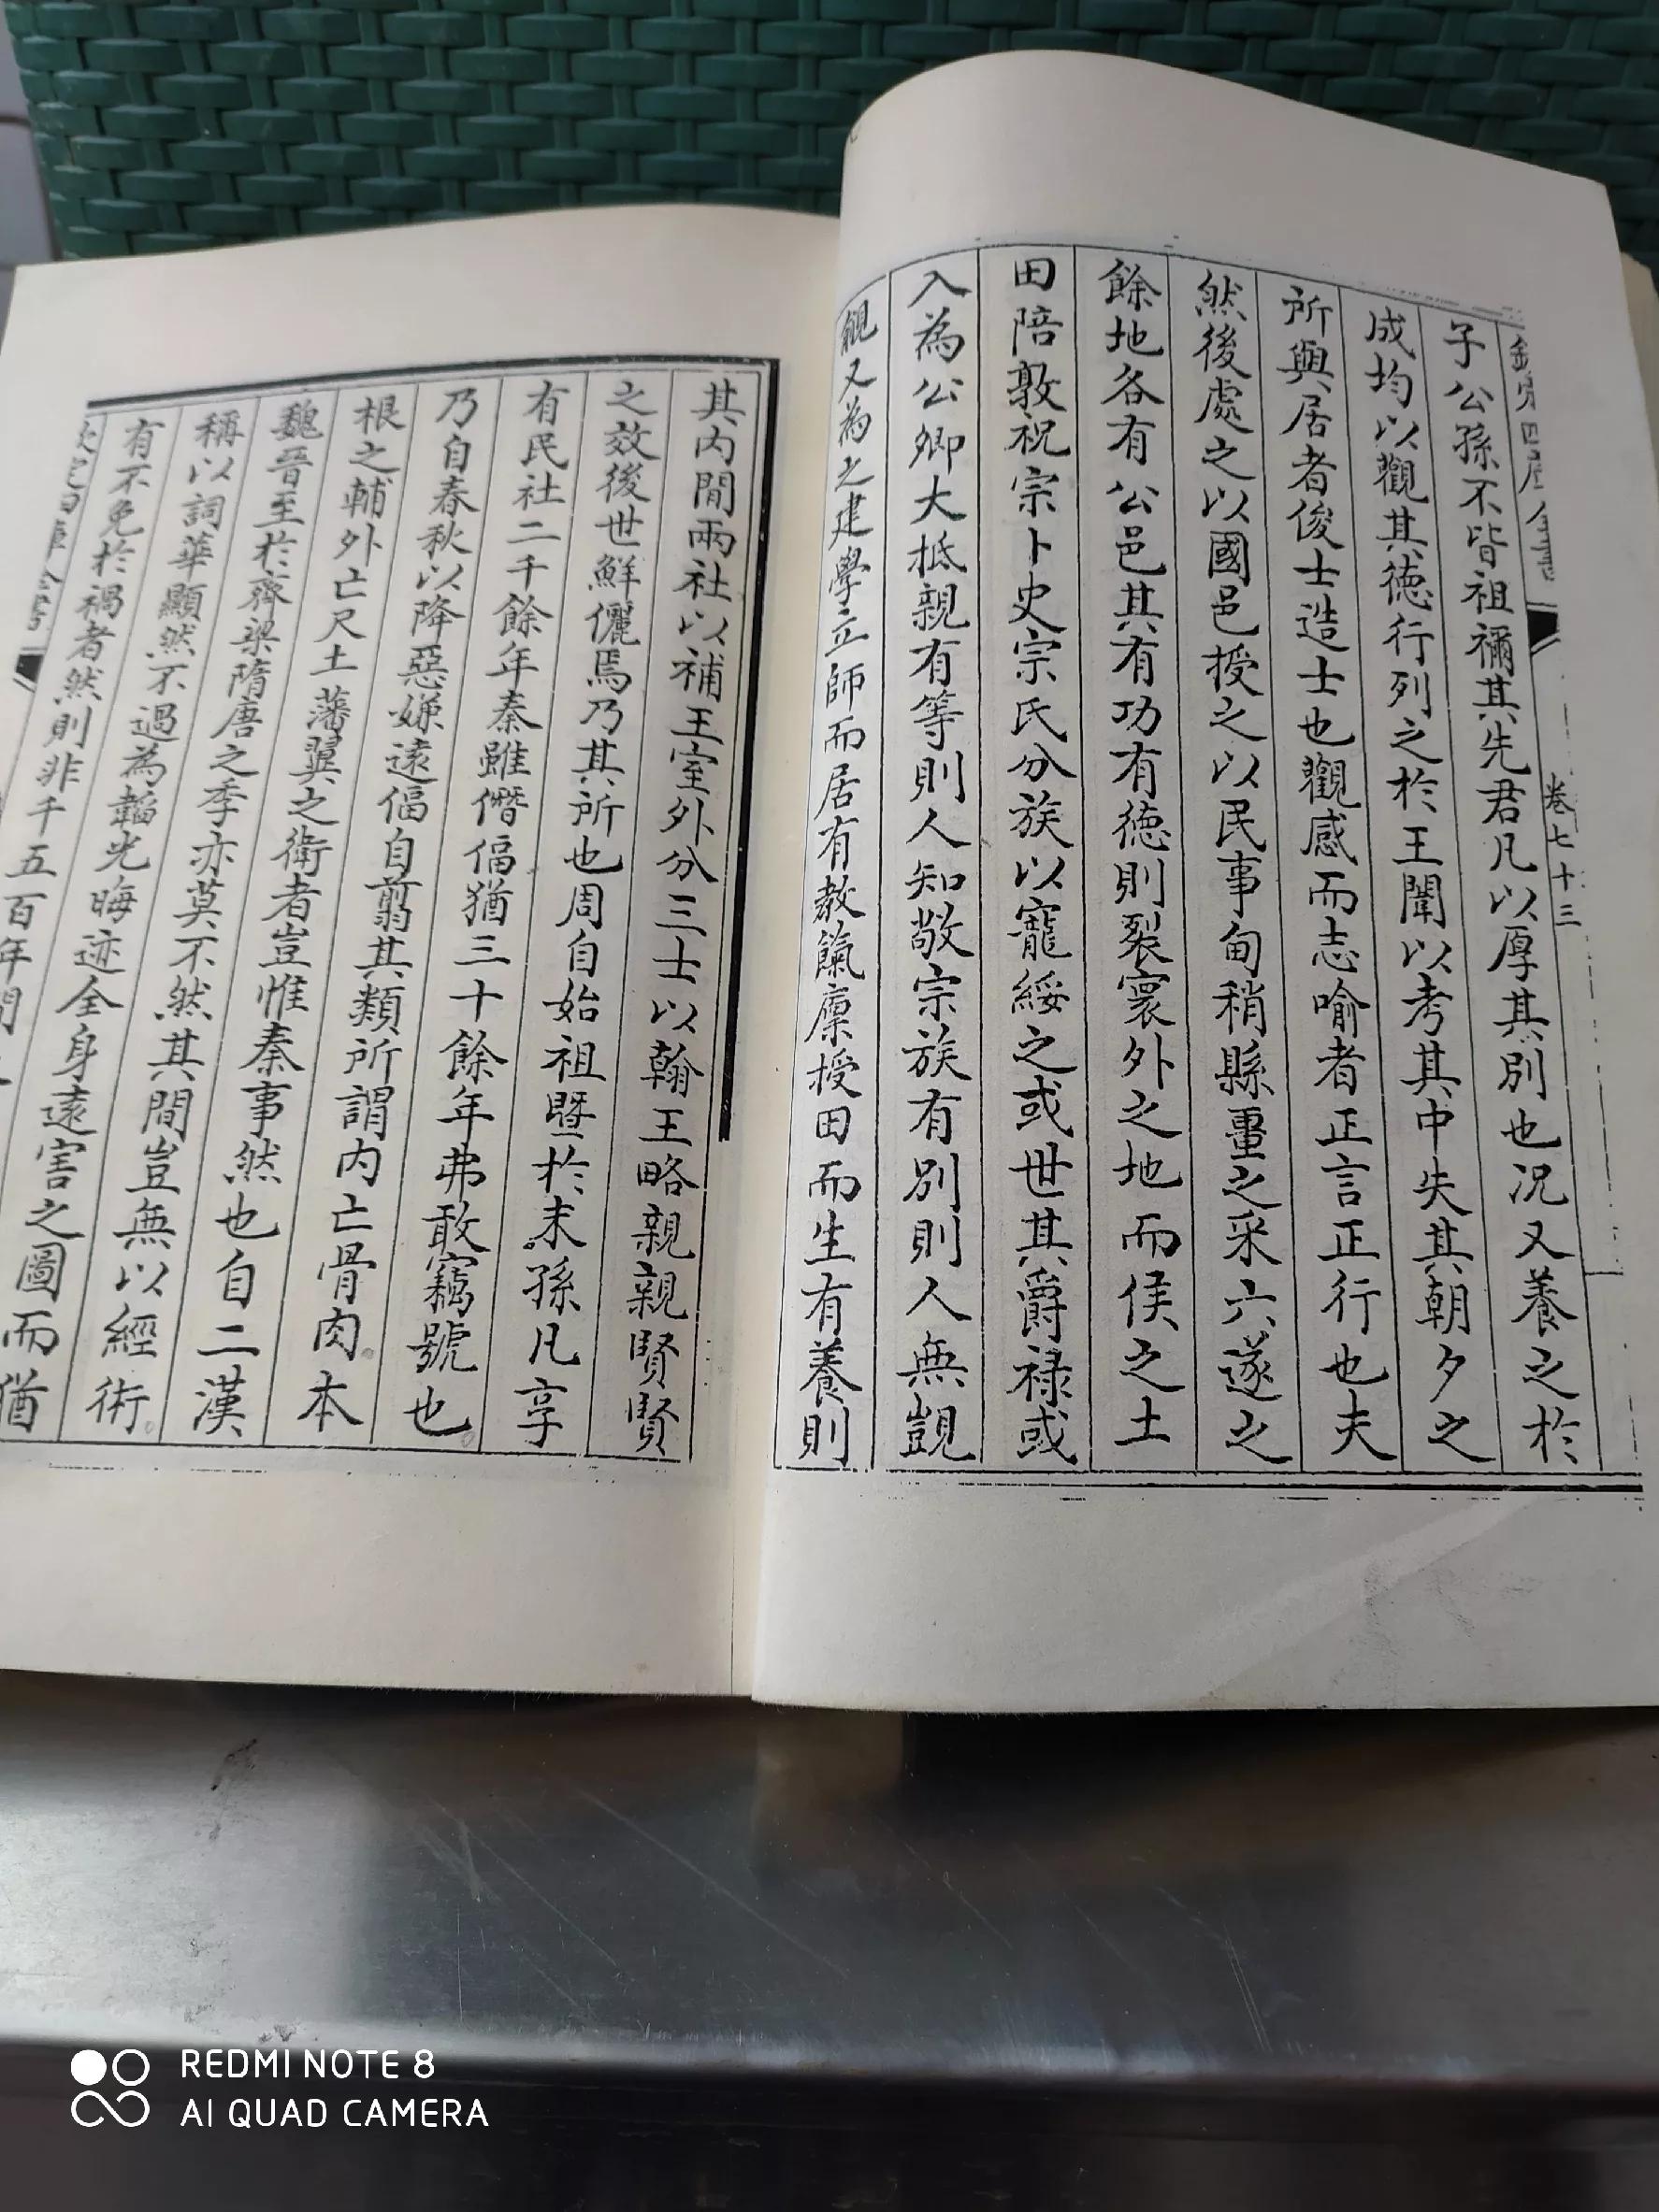 欽定四庫全書
卷七十三
子公孫不皆祖禰其先君凡以厚其別也况又養之於
成均以觀其徳行列之於王闈以考其中失其朝夕之
所與居者俊士造士也觀感而志喻者正言正行也夫
然後處之以國邑授之以民事甸稍縣畺之采六遂之
餘地各有公邑其有功有徳則裂寰外之地而侯之土
田陪敦祝宗卜史宗氏分族以寵綏之或世其爵禄或
入為公卿大抵親有等則人知敬宗族有别則人無覬
覦又為之建學立師而居有教餼廩授田而生有養則
其内閒兩社以補王室外分三士以翰王略親親賢賢
之效後世鮮儷焉乃其所也周自始祖暨於末孫凡享
有民社二千餘年秦雖僭偪猶三十餘年弗敢竊號也
乃自春秋以降惡嫌遠偪自翦其類所謂内亡骨肉本
根之輔外亡尺土藩翼之衛者豈惟秦事然也自二漢
魏晉至於齊梁隋唐之季亦莫不然其間豈無以經術
稱以詞華顯然不過為韜光晦迹全身遠害之圖而猶
有不免於禍者然則非千五百年間
欽定四庫全書
REDMI NOTE 8
AI QUAD CAMERA